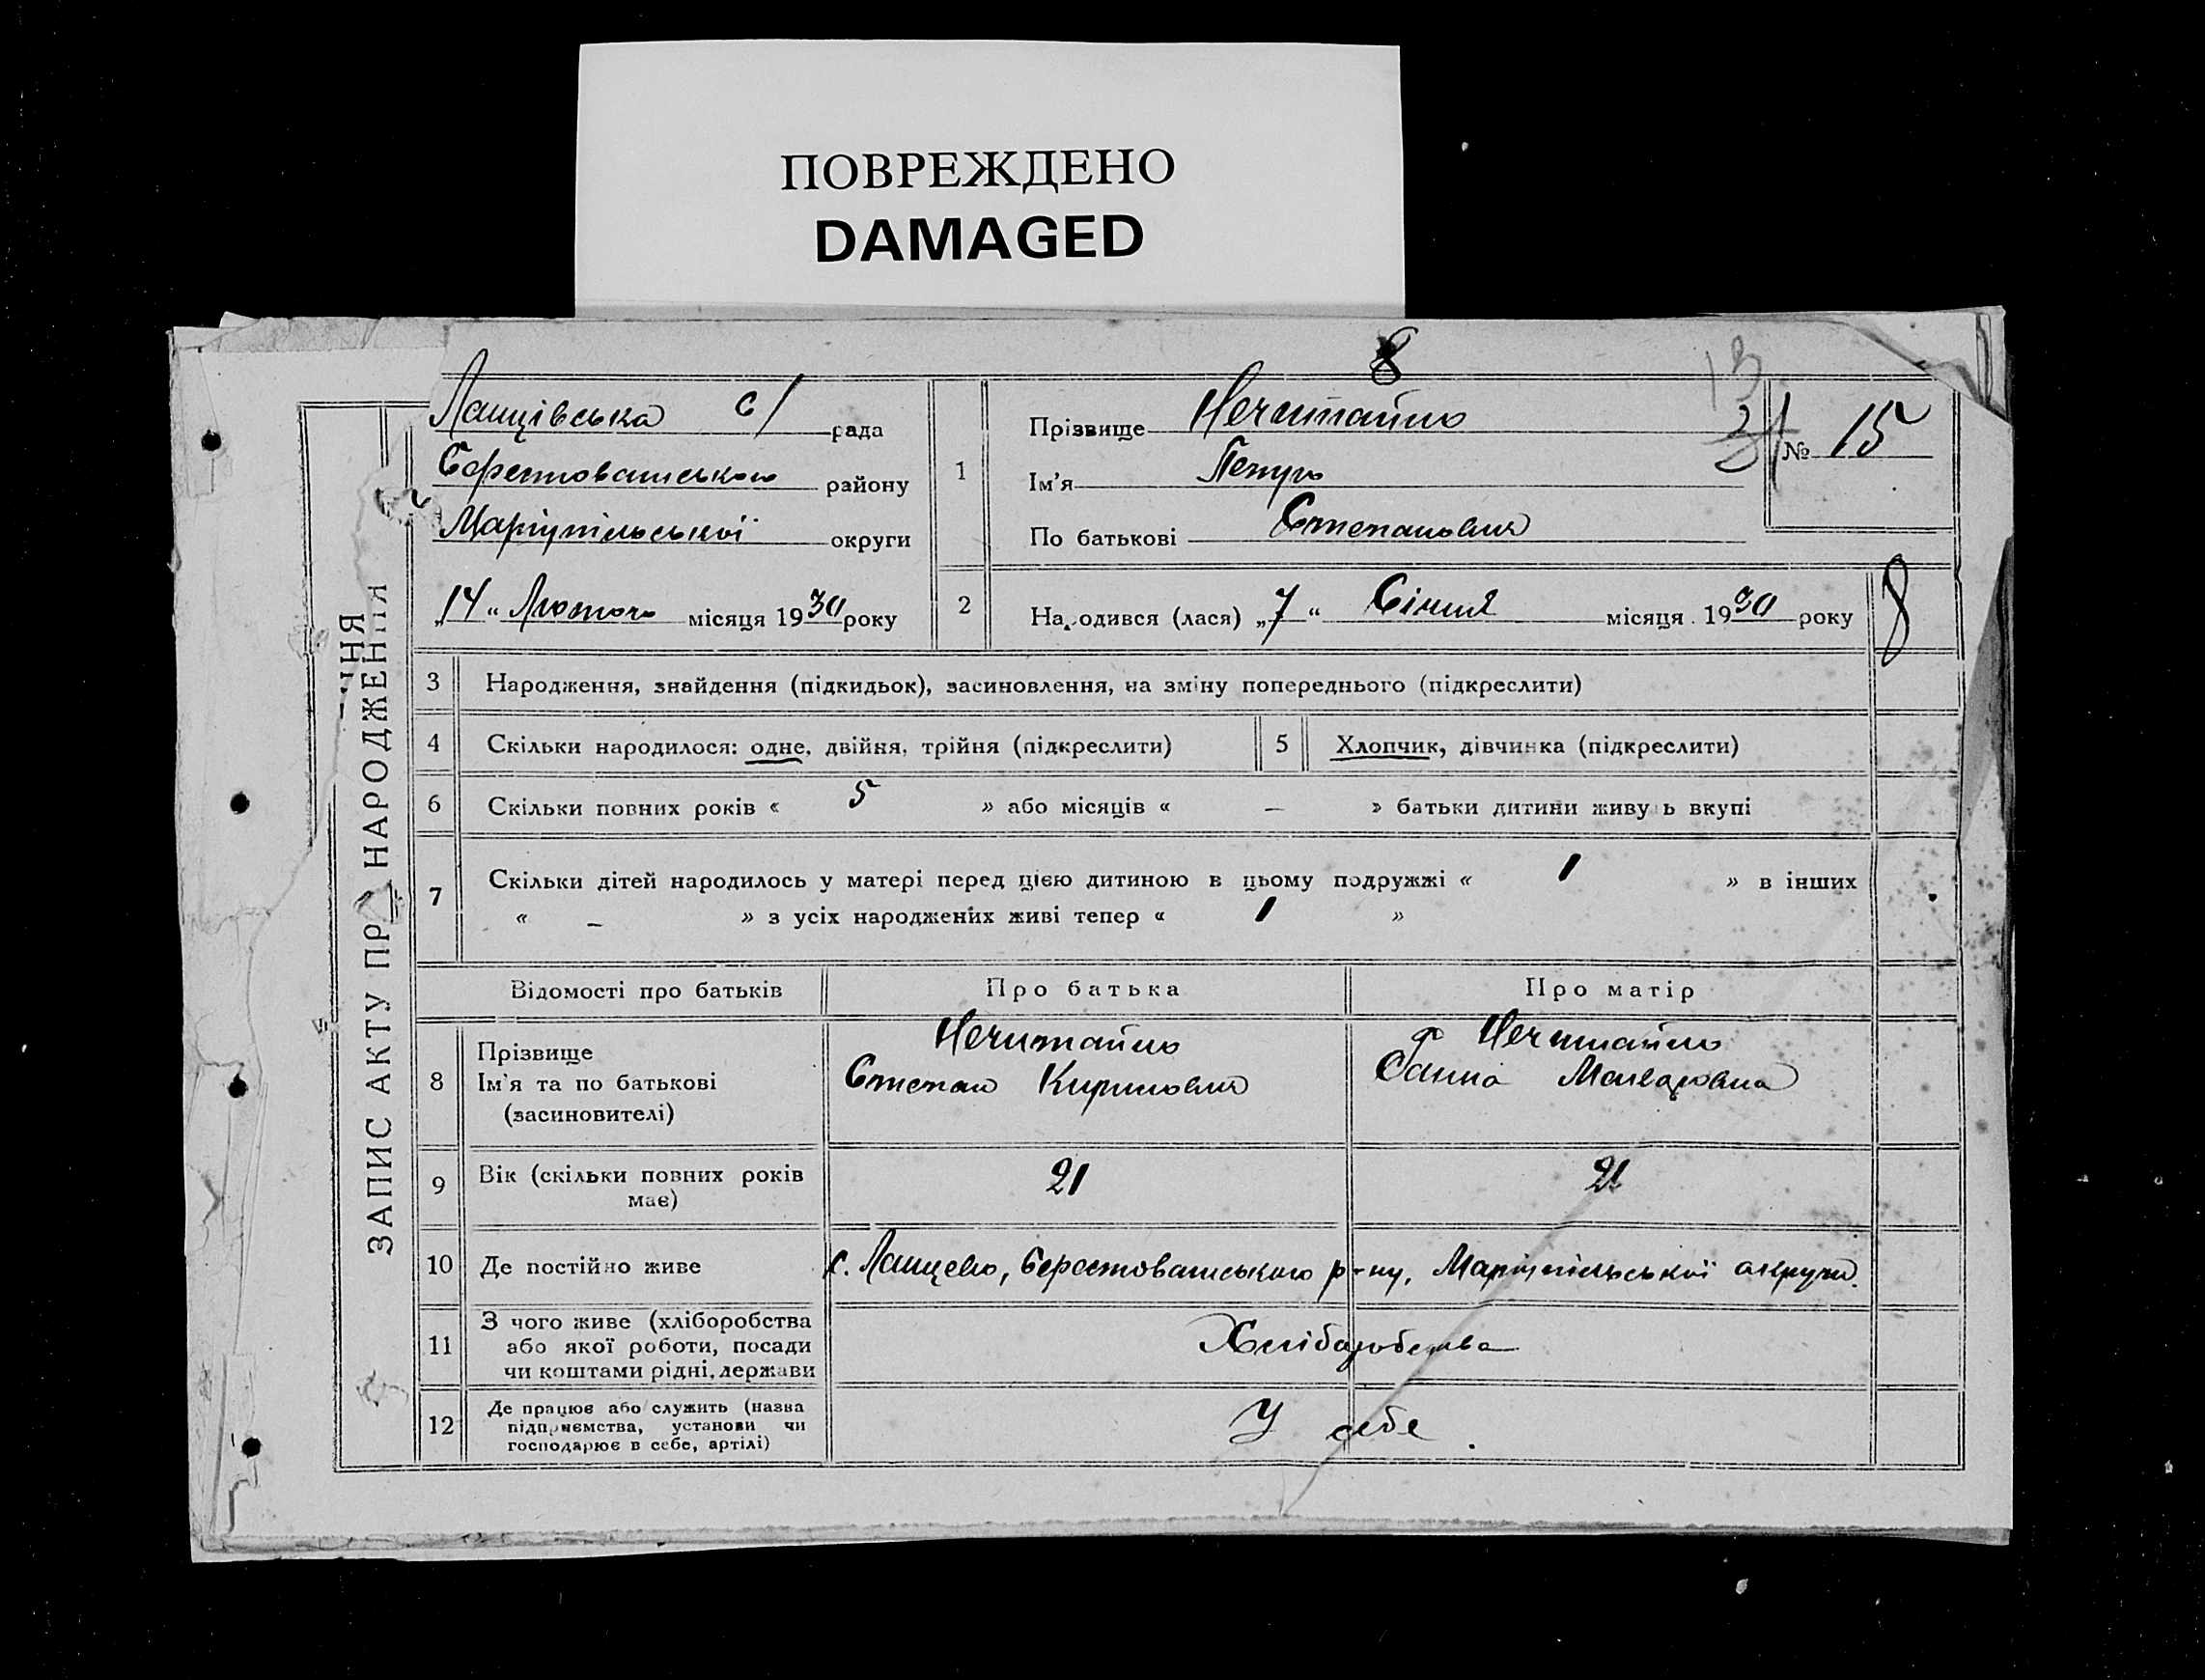 ПОВРЕЖДЕНО
DAMAGED
8
13
Ланцівська с/ рада
Берестоватського району
Маріупільської округи
„14“ Лютого місяця 1930 року
1
Прізвище Нечитайло
Ім'я Петро
По батькові Степанович
№ 15
2
Народився (лася) „7“ Січня місяця 1930 року
8
ЗАПИС АКТУ ПРО НАРОДЖЕННЯ
ННЯ
3 Народження, знайдення (підкидьок), засиновлення, на зміну попереднього (підкреслити)
4 Скільки народилося: одне, двійня, трійня (підкреслити) 5 Хлопчик, дівчинка (підкреслити)
6 Скільки повних років « 5 » або місяців « — » батьки дитини живуть вкупі
7 Скільки дітей народилось у матері перед цією дитиною в цьому подружжі « 1 » в інших
« – » з усіх народжених живі тепер « 1 »
Відомості про батьків Про батька Про матір
8 Прізвище
Ім'я та по батькові
(засиновителі)
Нечитайло
Степан Кирилович
Нечитайло
Ганна
9 Вік (скільки повних років
має)
21
21
10 Де постійно живе с. Ланцево, Берестоватського р-ну, Маріупільської округи.
11 З чого живе (хліборобства
або якої роботи, посади
чи коштами рідні, держави
Хліборобства
12 Де працює або служить (назва
підприємства, установи чи
господарює в себе, артілі)
У себе.